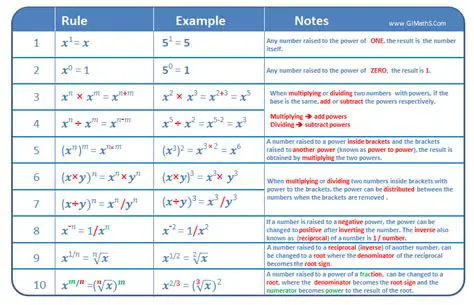 Rule Example Notes www.GIMathS.Com
1 x¹ = x 5¹ = 5 Any number raised to the power of ONE, the result is the number
itself.
2 x⁰ = 1 5⁰ = 1 Any number raised to the power of ZERO, the result is 1.
3 xⁿ × xᵐ = xⁿ⁺ᵐ x² × x³ = x²⁺³ = x⁵
When multiplying or dividing two numbers with powers, if
the base is the same, add or subtract the powers respectively.
Multiplying → add powers
Dividing → subtract powers
4 xⁿ ÷ xᵐ = xⁿ⁻ᵐ x⁵ ÷ x² = x⁵⁻² = x³
5 (xⁿ)ᵐ = xⁿˣᵐ (x³)² = x³ˣ² = x⁶
A number raised to a power inside brackets and the brackets
raised to another power (known as power to power), the result is
obtained by multiplying the two powers.
6 (x×y)ⁿ = xⁿ×yⁿ (x×y)³ = x³× y³
When multiplying or dividing two numbers inside brackets with
power to the brackets, the power can be distributed between the
numbers when the brackets are removed .
7 (x÷y)ⁿ = xⁿ/yⁿ (x÷y)³ = x³/y³
8 x⁻ⁿ = 1/xⁿ x⁻² = 1/x²
If a number is raised to a negative power, the power can be
changed to positive after inverting the number. The inverse also
known as (reciprocal) of a number is 1 / number.
9 x¹/ⁿ = ⁿ√x x¹/² = ²√x
A number raised to a reciprocal (inverse) of another number, can
be changed to a root where the denominator of the reciprocal
becomes the root sign.
10 xᵐ/ⁿ=(ⁿ√x)ᵐ x²/³ = (³√x)²
A number raised to a power of a fraction, can be changed to a
root, where the denominator becomes the root sign and the
numerator becomes power to the result of the root.